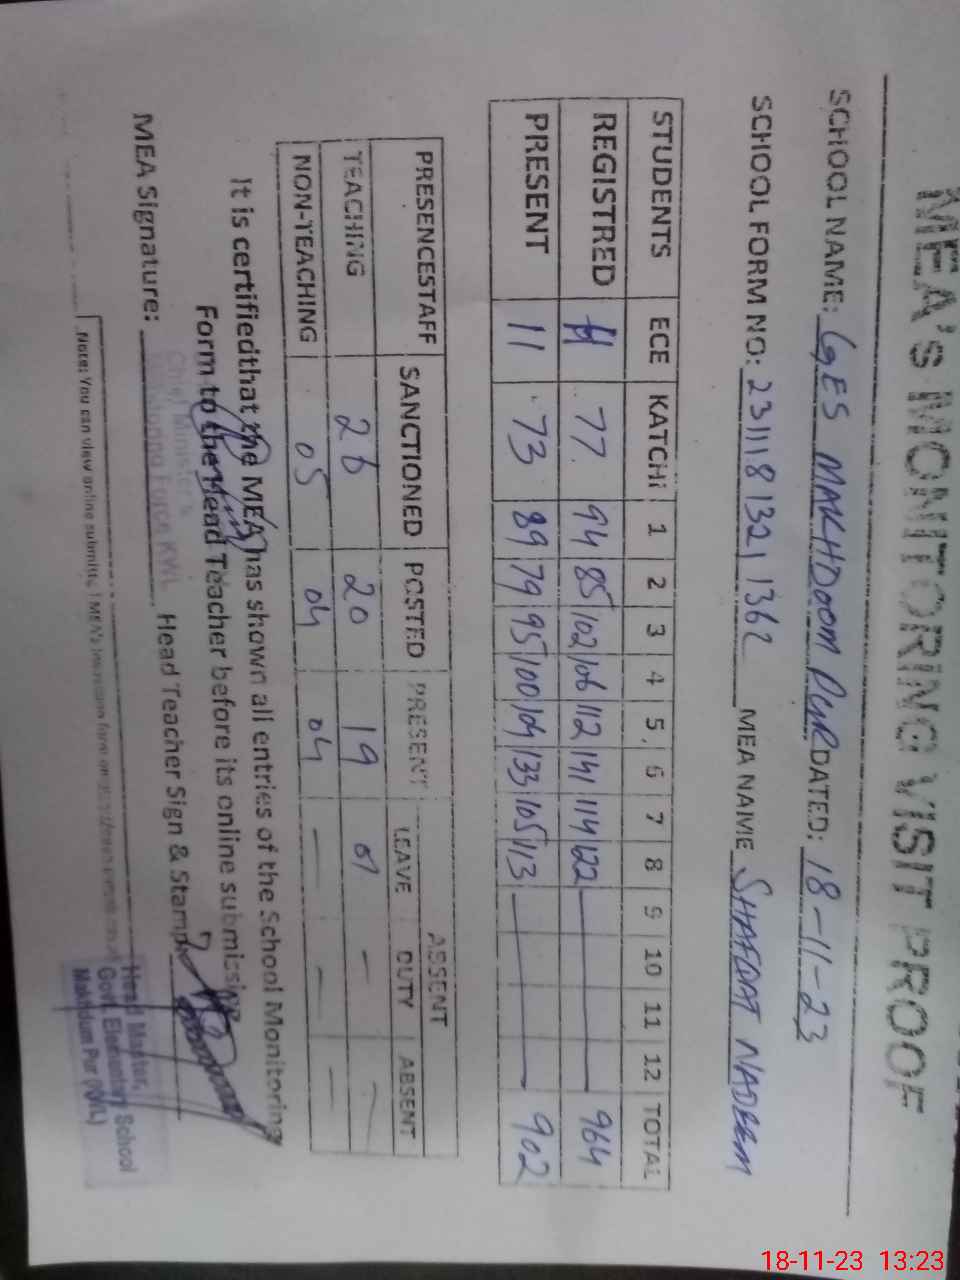 MEA's MONITORING VISIT PROOF
SCHOOL NAME: GES MAKHDOOM PUR DATED: 18-11-23
SCHOOL FORM NO: 23111813211362 MEA NAME SHAFQAT NADEEM
STUDENTS ECE KATCHi 1 2 3 4 5 6 7 8 9 10 11 12 TOTAL
REGISTRED 11 77 94 85 102 106 112 141 114 122 964
PRESENT 11 73 89 79 95 100 104 133 105 113 902
ABSENT
PRESENCESTAFF SANCTIONED POSTED PRESENT LEAVE DUTY ABSENT
TEACHING 26 20 19 01 - -
NON-TEACHING 05 04 04 - - -
It is certifiedthat the MEA has shown all entries of the School Monitoring
Form to the Head Teacher before its online submission
Chief Minister's
Monitoring Force KWL
MEA Signature: Head Teacher Sign & Stamp
Head Master,
Govt. Elementary School
Makhdum Pur (KWL)
Note: You can view online submitted MEA's
18-11-23 13:23